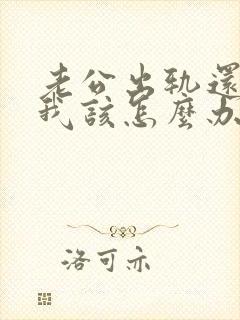 老公出軌還
我該怎麼办
洛可亦